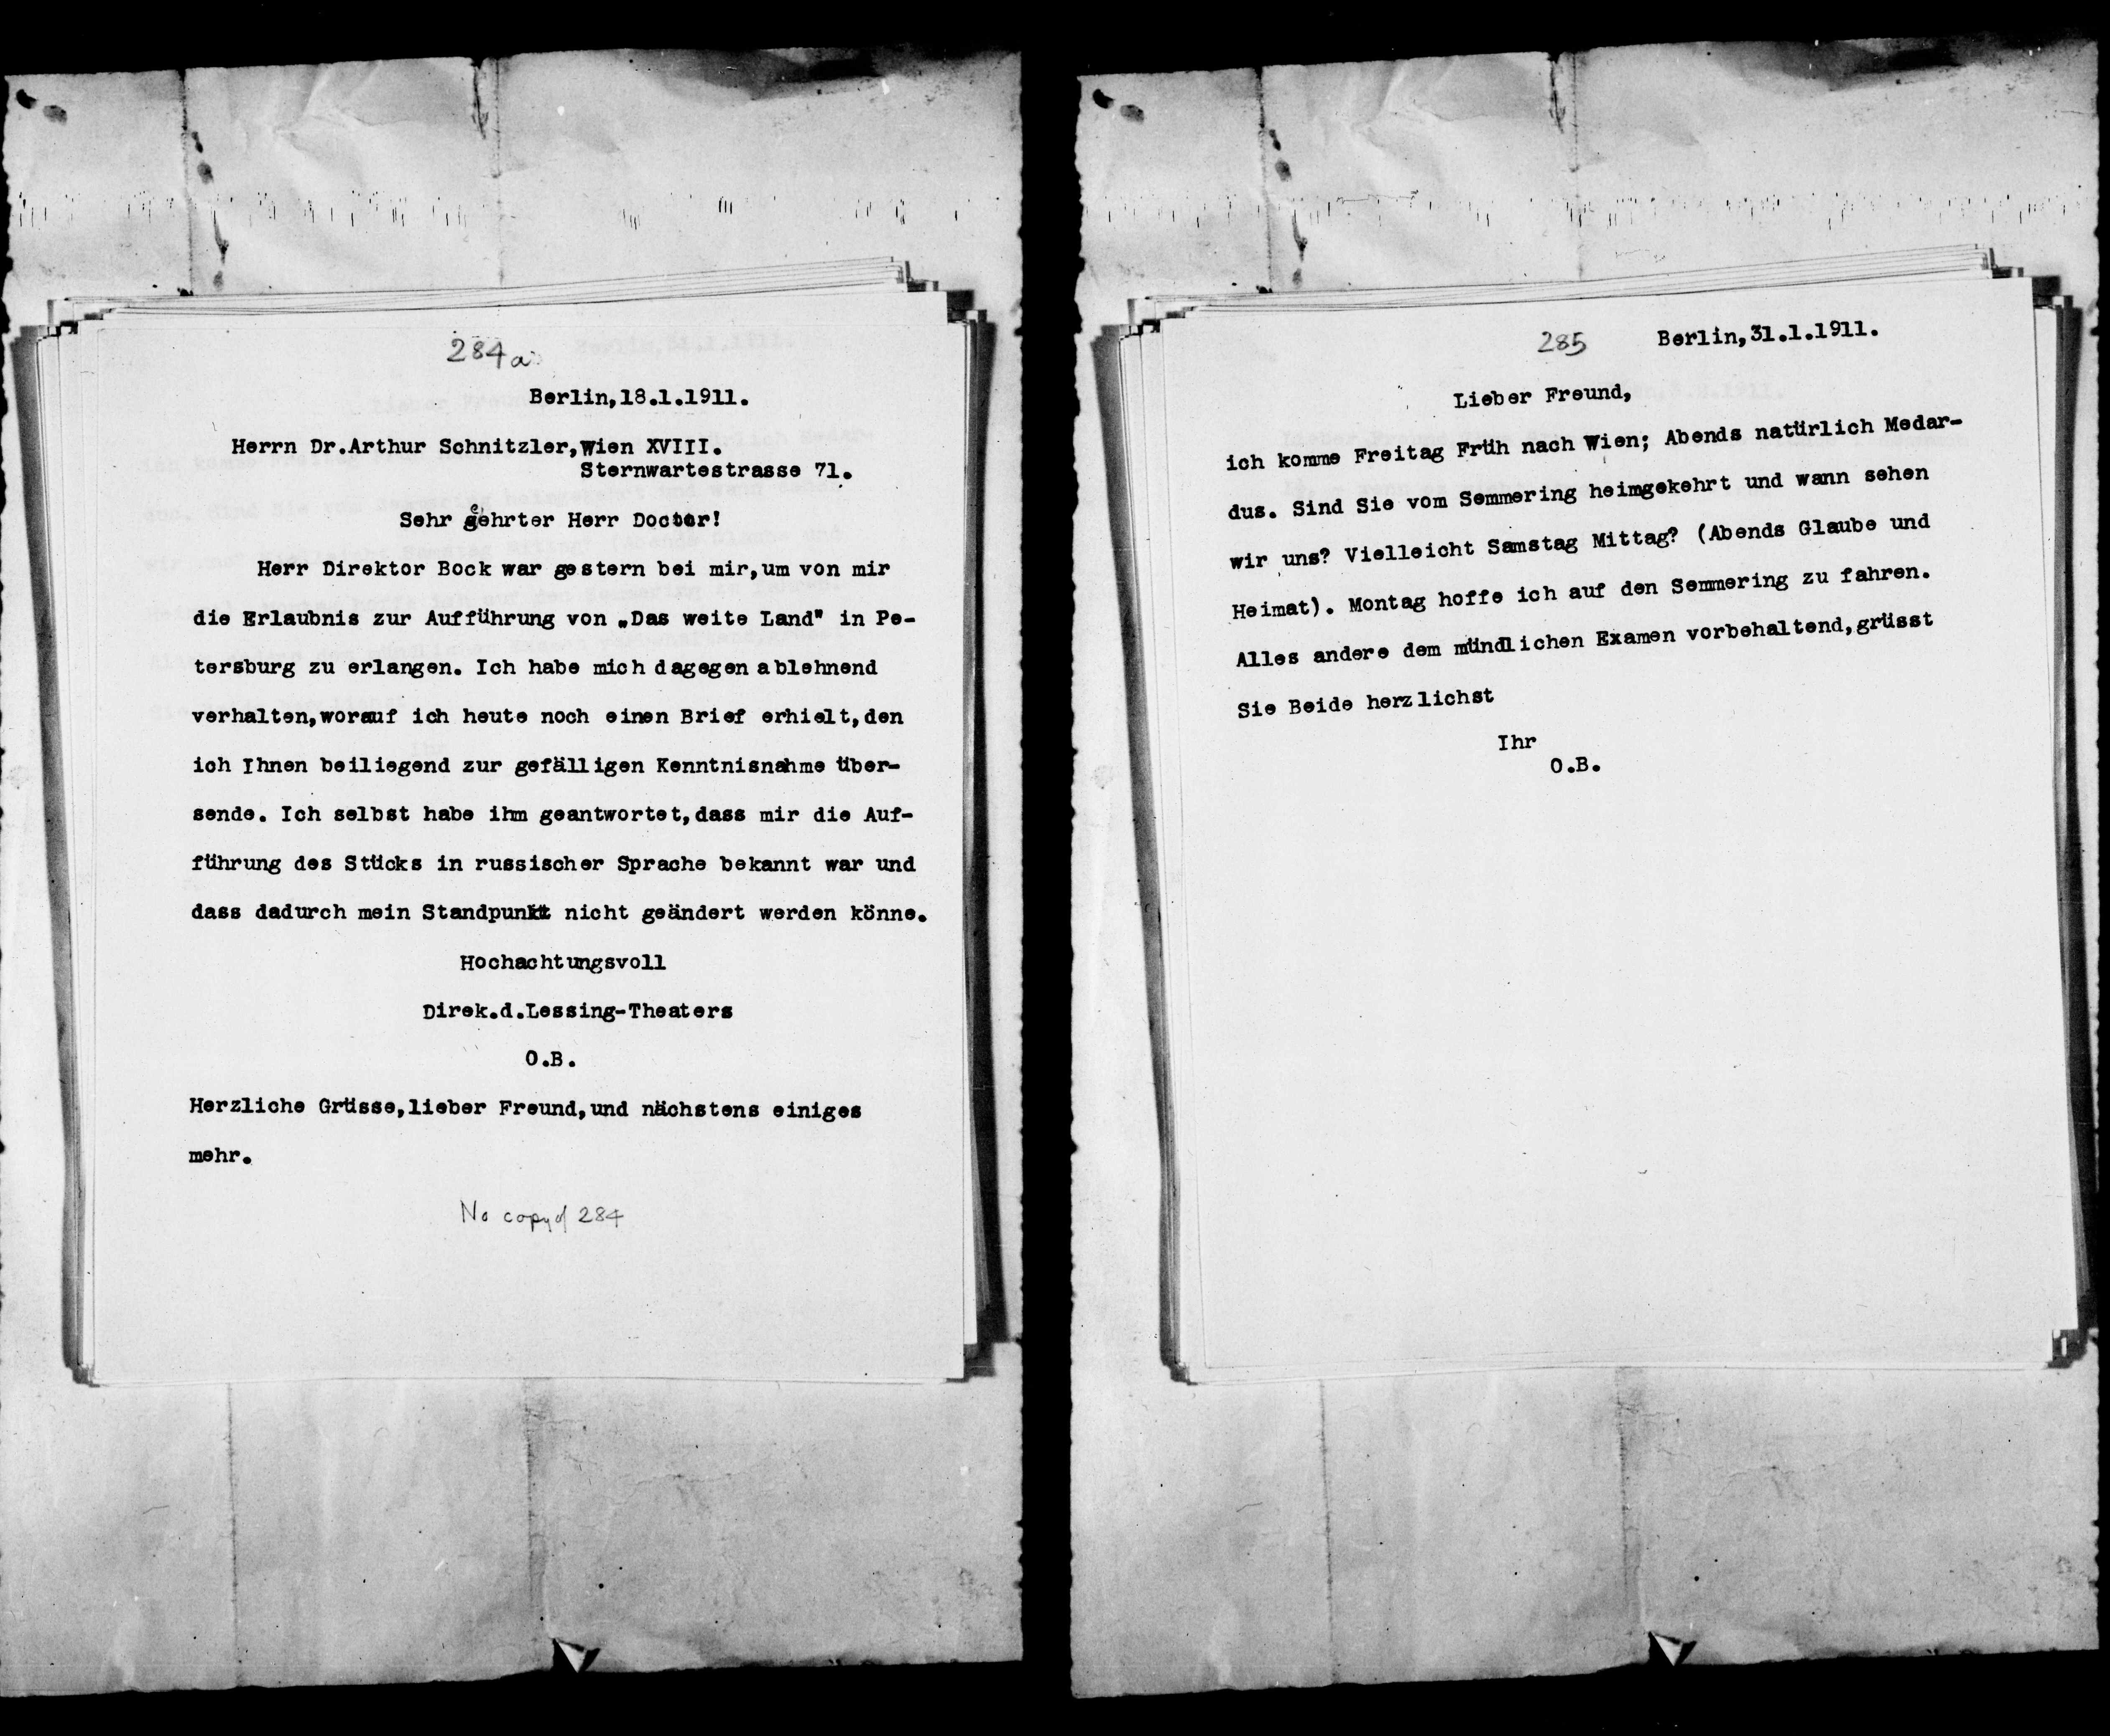 284a
Berlin,18.1.1911.
Herrn Dr.Arthur Schnitzler,Wien XVIII.
Sternwartestrasse 71.
Sehr geehrter Herr Doctor!
Herr Direktor Bock war gestern bei mir,um von mir
die Erlaubnis zur Aufführung von „Das weite Land" in Pe-
tersburg zu erlangen. Ich habe mich dagegen ablehnend
verhalten,worauf ich heute noch einen Brief erhielt,den
ich Ihnen beiliegend zur gefälligen Kenntnisnahme über-
sende. Ich selbst habe ihm geantwortet,dass mir die Auf-
führung des Stücks in russischer Sprache bekannt war und
dass dadurch mein Standpunkt nicht geändert werden könne.
Hochachtungsvoll
Direk.d.Lessing-Theaters
O.B.
Herzliche Grüsse,lieber Freund,und nächstens einiges
mehr.
No copy of 284
285
Berlin,31.1.1911.
Lieber Freund,
ich komme Freitag Früh nach Wien; Abends natürlich Medar-
dus. Sind Sie vom Semmering heimgekehrt und wann sehen
wir uns? Vielleicht Samstag Mittag? (Abends Glaube und
Heimat). Montag hoffe ich auf den Semmering zu fahren.
Alles andere dem mündlichen Examen vorbehaltend,grüsst
Sie Beide herzlichst
Ihr
O.B.